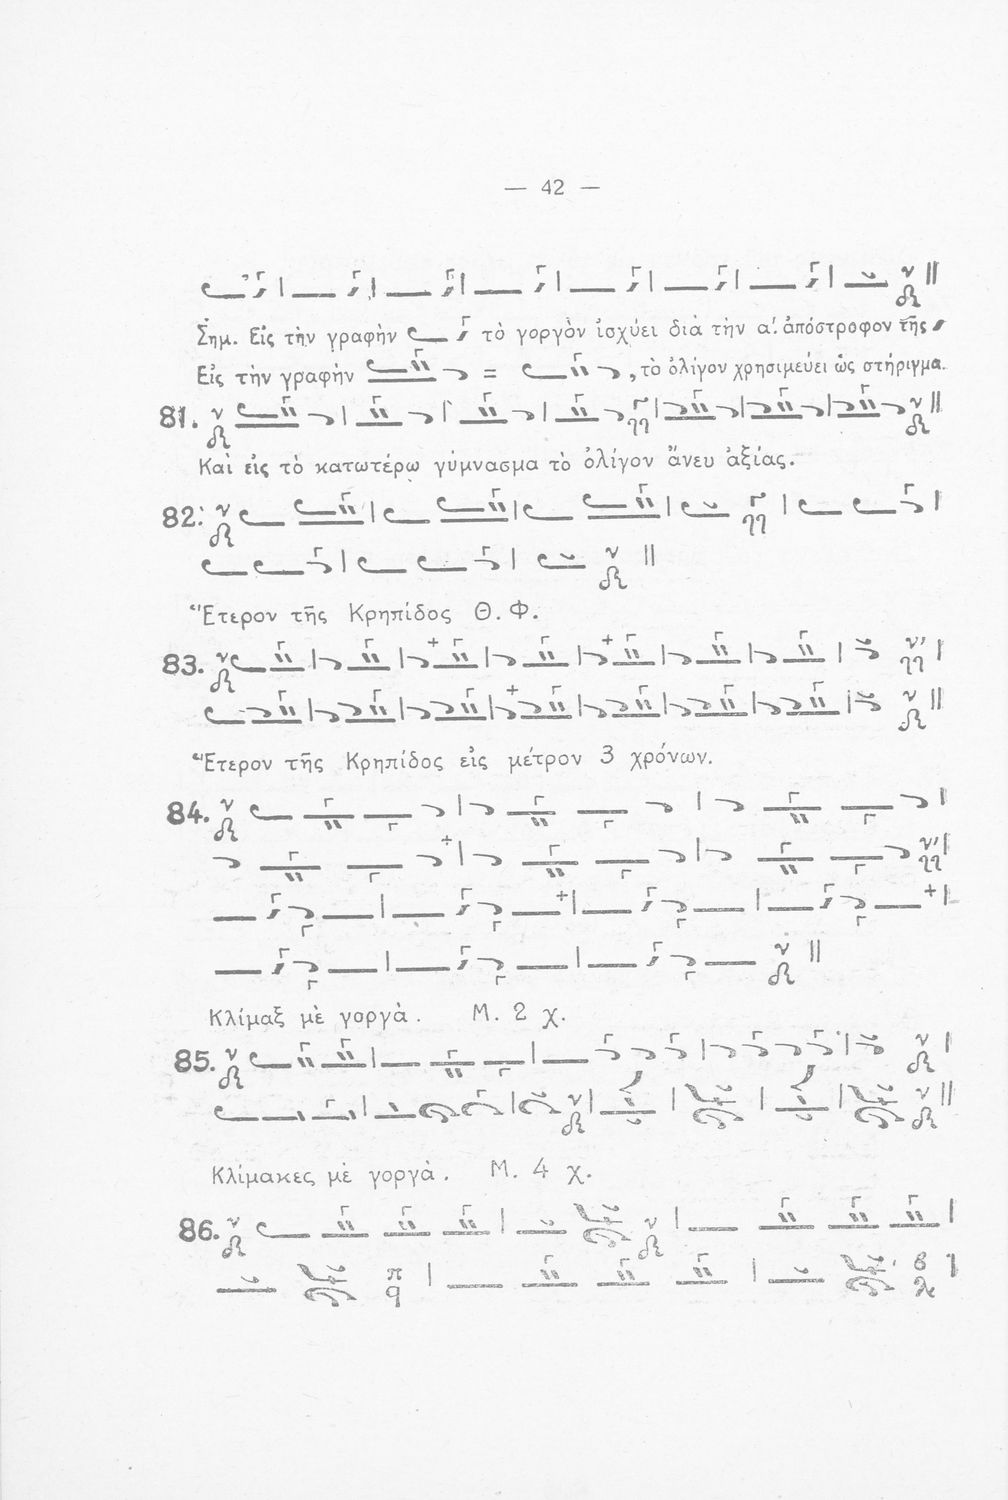 — 42 —
Σημ. Εἰς τὴν γραφὴν τὸ γοργὸν ἰσχύει διὰ τὴν α΄. ἀπόστροφον τῆς
Εἰς τὴν γραφὴν = , τὸ ὀλίγον χρησιμεύει ὡς στήριγμα.
81.
Καὶ εἰς τὸ κατωτέρω γύμνασμα τὸ ὀλίγον ἄνευ ἀξίας.
82.
Ἕτερον τῆς Κρηπίδος Θ. Φ.
83.
Ἕτερον τῆς Κρηπίδος εἰς μέτρον 3 χρόνων.
84.
Κλίμαξ μὲ γοργὰ. Μ. 2 χ.
85.
Κλίμακες μὲ γοργὰ. Μ. 4 χ.
86.